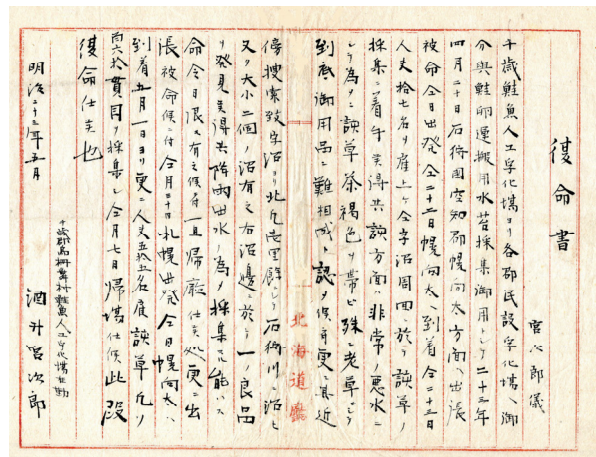 復命書
宮次郎儀
千歳鮭魚人工孚化場ヨリ各郡民設孚化場ヘ御
分與鮭卵運搬用水苔採集御用トシテ二十三年
四月二十日石狩国空知郡幌向太方面ヘ出張
被命仝日出発仝二十二日幌向太ヘ到着仝二十三日
人夫拾七名ヲ雇上ケ仝字沼周囲ニ於テ該草ノ
採集ニ着手候得共該方面ハ非常ノ悪水ニ
シテ為メニ該草茶褐色ヲ帯ヒ殊ニ老草ニシテ
到底御用品ニ難相成ト認メ候ニ付更ニ其近
傍捜索致字沼ヨリ北凡壱里餘ニシテ石狩川ニ沿ヒ
又々大小二個ノ沼有之右沼邊ニ於テ一ノ良品
ヲ発見候得共降雨出水ノ為メ採集スル能ハス
命令日限モ有之候ニ付一旦帰廳仕候処更ニ出
張被命候ニ付仝月三十日札幌出発仝日幌向太ヘ
到着五月一日ヨリ更ニ人夫五拾五名雇該草凡ソ
百六拾貫目ヲ採集シ仝月七日帰場仕候此段
復命仕候也
千歳郡烏柵舞村鮭魚人工孚化場在勤
明治二十三年五月
酒井宮次郎
北海道廳